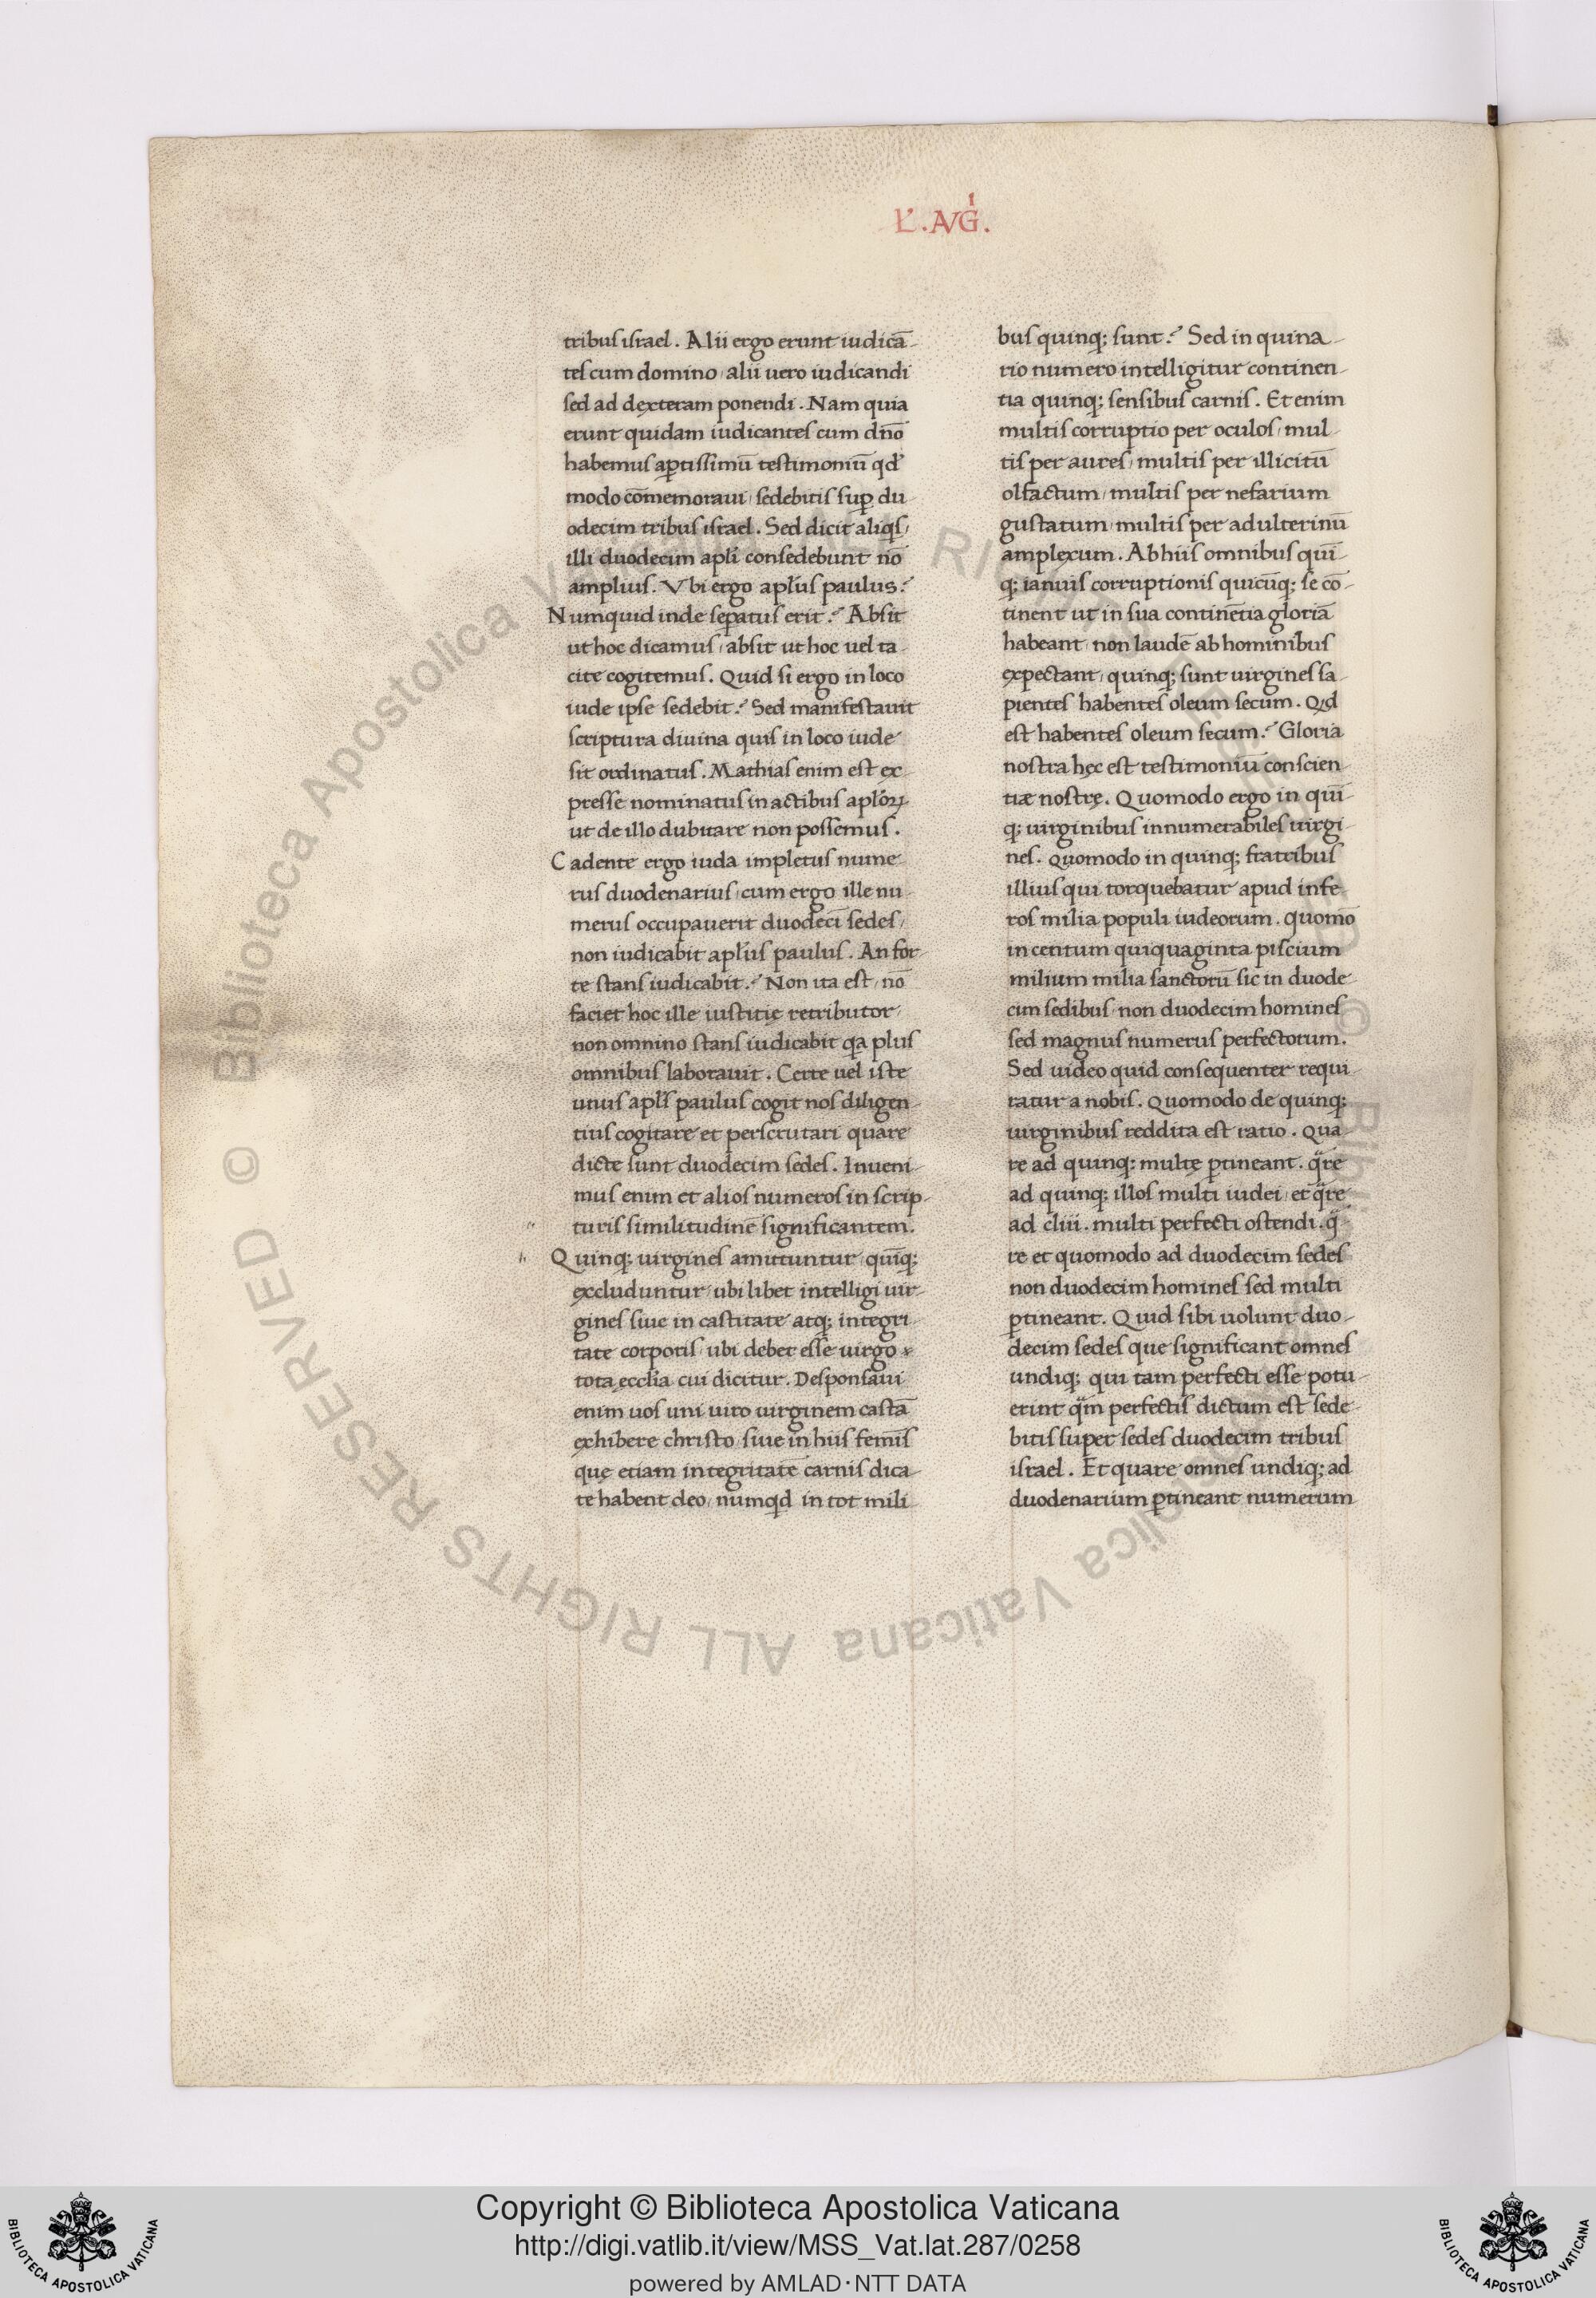 L̕ .AVGͥ.
tribus israel. Alii ergo erunt iudicā-
tes cum domino, alii uero iudicandi
sed ad dexteram ponendi. Nam quia
erunt quidam iudicantes cum dn̄o
habemus aꝑtissimū testimoniū qd̕
modo cōmemoraui, sedebitis suꝑ du-
odecim tribus israel. Sed dicit aliq̕s,
illi duodecim apl̄i consedebunt nō
amplius. Vbi ergo apl̕us paulus?
Numquid inde seꝑatus erit? Absit
ut hoc dicamus, absit ut hoc uel ta-
cite cogitemus. Quid si ergo in loco
iude ipse sedebit? Sed manifestauit
scriptura diuina quis in loco iude
sit ordinatus. Mathias enim est ex-
presse nominatus in actibus apl̕oꝝ
ut de illo dubitare non possemus.
Cadente ergo iuda impletus nume-
rus duodenarius, cum ergo ille nu-
merus occupauerit duodecī sedes,
non iudicabit apl̕us paulus. An for-
te stans iudicabit? Non ita est, nō
faciet hoc ille iustitię retributor,
non omnino stans iudicabit qa plus
omnibus laborauit. Certe uel iste
unus apl̕s paulus cogit nos diligen-
tius cogitare et perscrutari quare
dicte sunt duodecim sedes. Inueni-
mus enim et alios numeros in scrip-
turis similitudinē significantem.
Quinq; uirgines amittuntur, quīq;
excluduntur, ubi libet intelligi uir-
gines siue in castitate atq; integri-
tate corporis, ubi debet esse uirgo
tota eccl̕ia cui dicitur. Desponsaui
enim uos uni uiro uirginem castā
exhibere christo, siue in hiis femīs
quę etiam integritatē carnis dica-
te habent deo, numqd in tot mili-
bus quinq; sunt? Sed in quina-
rio numero intelligitur continen-
tia quinq; sensibus carnis. Et enim
multis corruptio per oculos, mul-
tis per aures, multis per illicitū
olfactum, multis per nefarium
gustatum, multis per adulterinū
amplexum. Ab hiis omnibus quī-
q; ianuis corruptionis quicūq; se cō-
tinent ut in sua continētia gloriā
habeant, non laudē ab hominibus
expectant, quinq; sunt uirgines sa-
pientes habentes oleum secum. Qd
est habentes oleum secum? Gloria
nostra hęc est testimoniū conscien-
tiæ nostrę. Quomodo ergo in quī-
q; uirginibus innumerabiles uirgi-
nes. Quomodo in quinq; fratribus
illius qui torquebatur apud infe-
ros milia populi iudeorum. quomō
in centum quiquaginta piscium
milium milia sanctorū sic in duode-
cim sedibus, non duodecim homines
sed magnus numerus perfectorum.
Sed uideo quid consequenter requi-
ratur a nobis. Quomodo de quinq;
uirginibus reddita est ratio. Qua-
re ad quinq; multę ꝑtineant. qͣre
ad quinq; illos multi iudei, et qͣre
ad cliii. multi perfecti ostendi. qͣ-
re et quomodo ad duodecim sedes
non duodecim homines sed multi
ꝑtineant. Quid sibi uolunt duo-
decim sedes que significant omnes
undiq; qui tam perfecti esse potu-
erint qͣm perfectis dictum est sede-
bitis super sedes duodecim tribus
israel. Et quare omnes undiq; ad
duodenarium ꝑtineant numerum
Copyright © Biblioteca Apostolica Vaticana
http://digi.vatlib.it/view/MSS_Vat.lat.287/0258
powered by AMLAD·NTT DATA
BIBLIOTECA APOSTOLICA VATICANA
BIBLIOTECA APOSTOLICA VATICANA
© Biblioteca Apostolica Vaticana ALL RIGHTS RESERVED
© Biblioteca Apostolica Vaticana ALL RIGHTS RESERVED